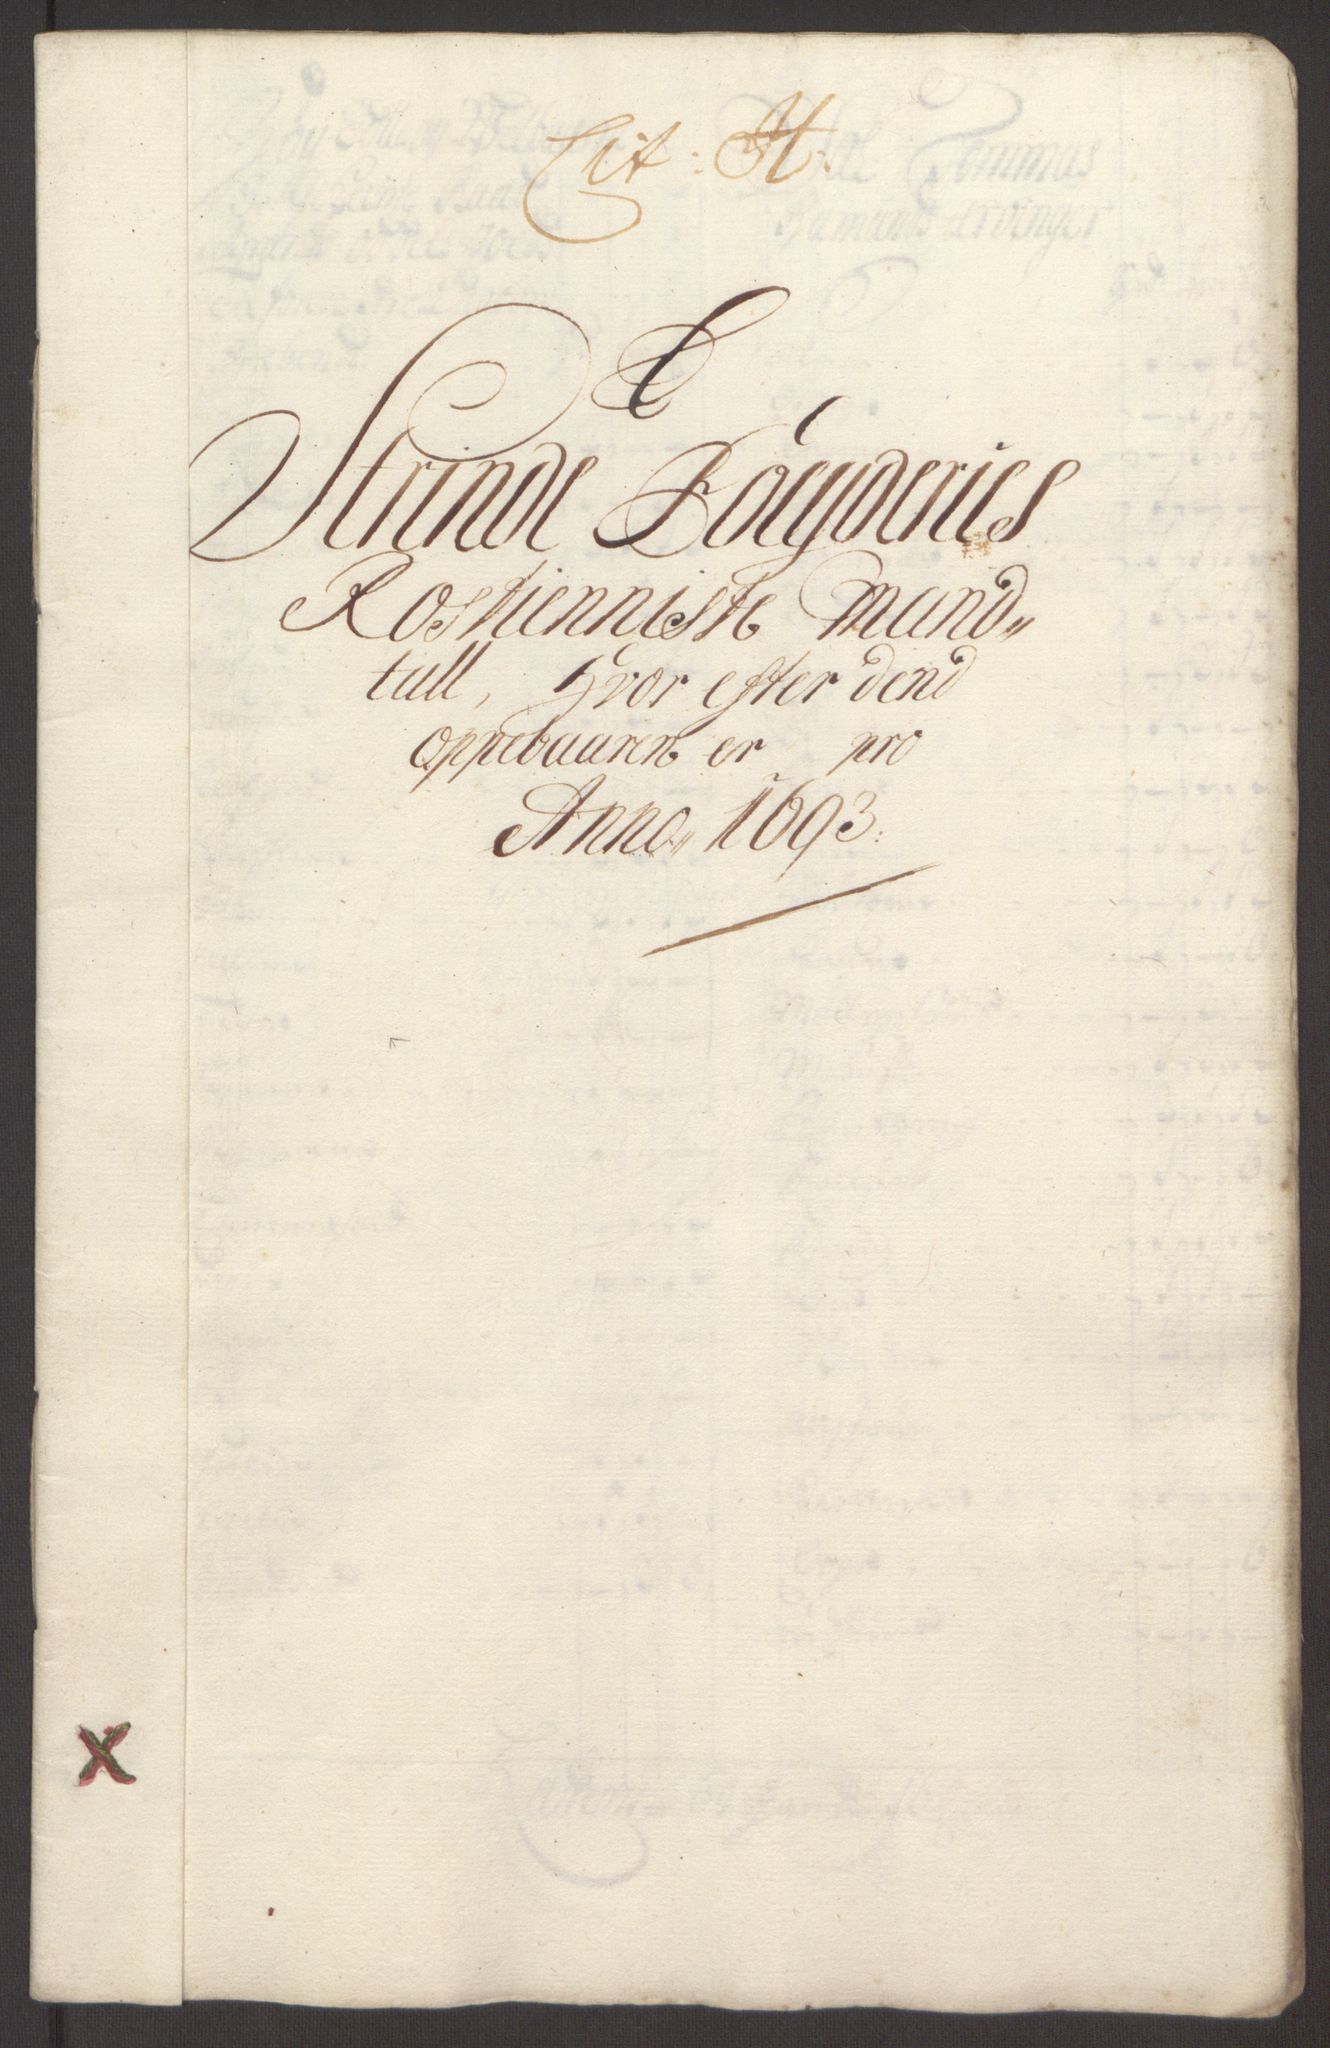 Lit: H:
Strinde Foegderies
Rostienniste Mand„
tall, Hvor efter dend
oppebaaren er pro
Anno„ 1693.